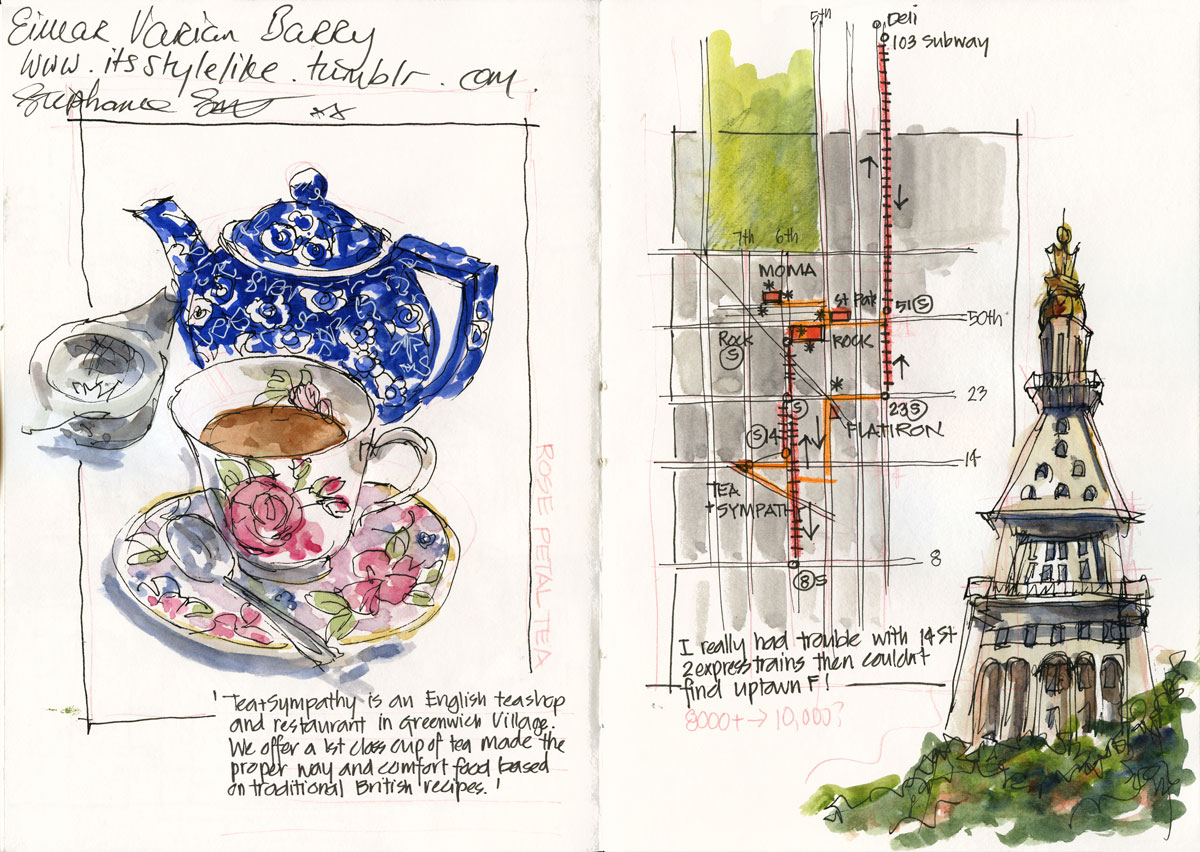 Eimear Varian Barry
www.itsstylelike.tumblr.com.
Stephanie
ROSE PETAL TEA
'Tea+Sympathy is an English teashop
and restaurant in Greenwich Village.
We offer a 1st class cup of tea made the
proper way and comfort food based
on traditional British recipes.'
5th
Deli
103 subway
7th 6th
MOMA
St Pat
51 S
50th
Rock
S
ROCK
23
S
23 S
FLATIRON
S 14
14
TEA
+SYMPATHY
8
8 S
I really had trouble with 14 St
2 express trains then couldn't
find uptown F!
8000+→10,000?